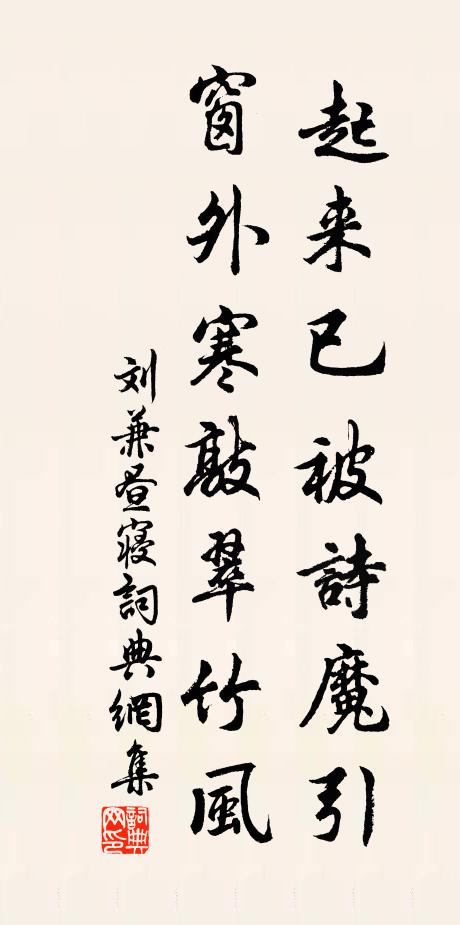 起来已被詩魔引
窗外寒敲翠竹風
刘兼昼寝詞典網集
詞典